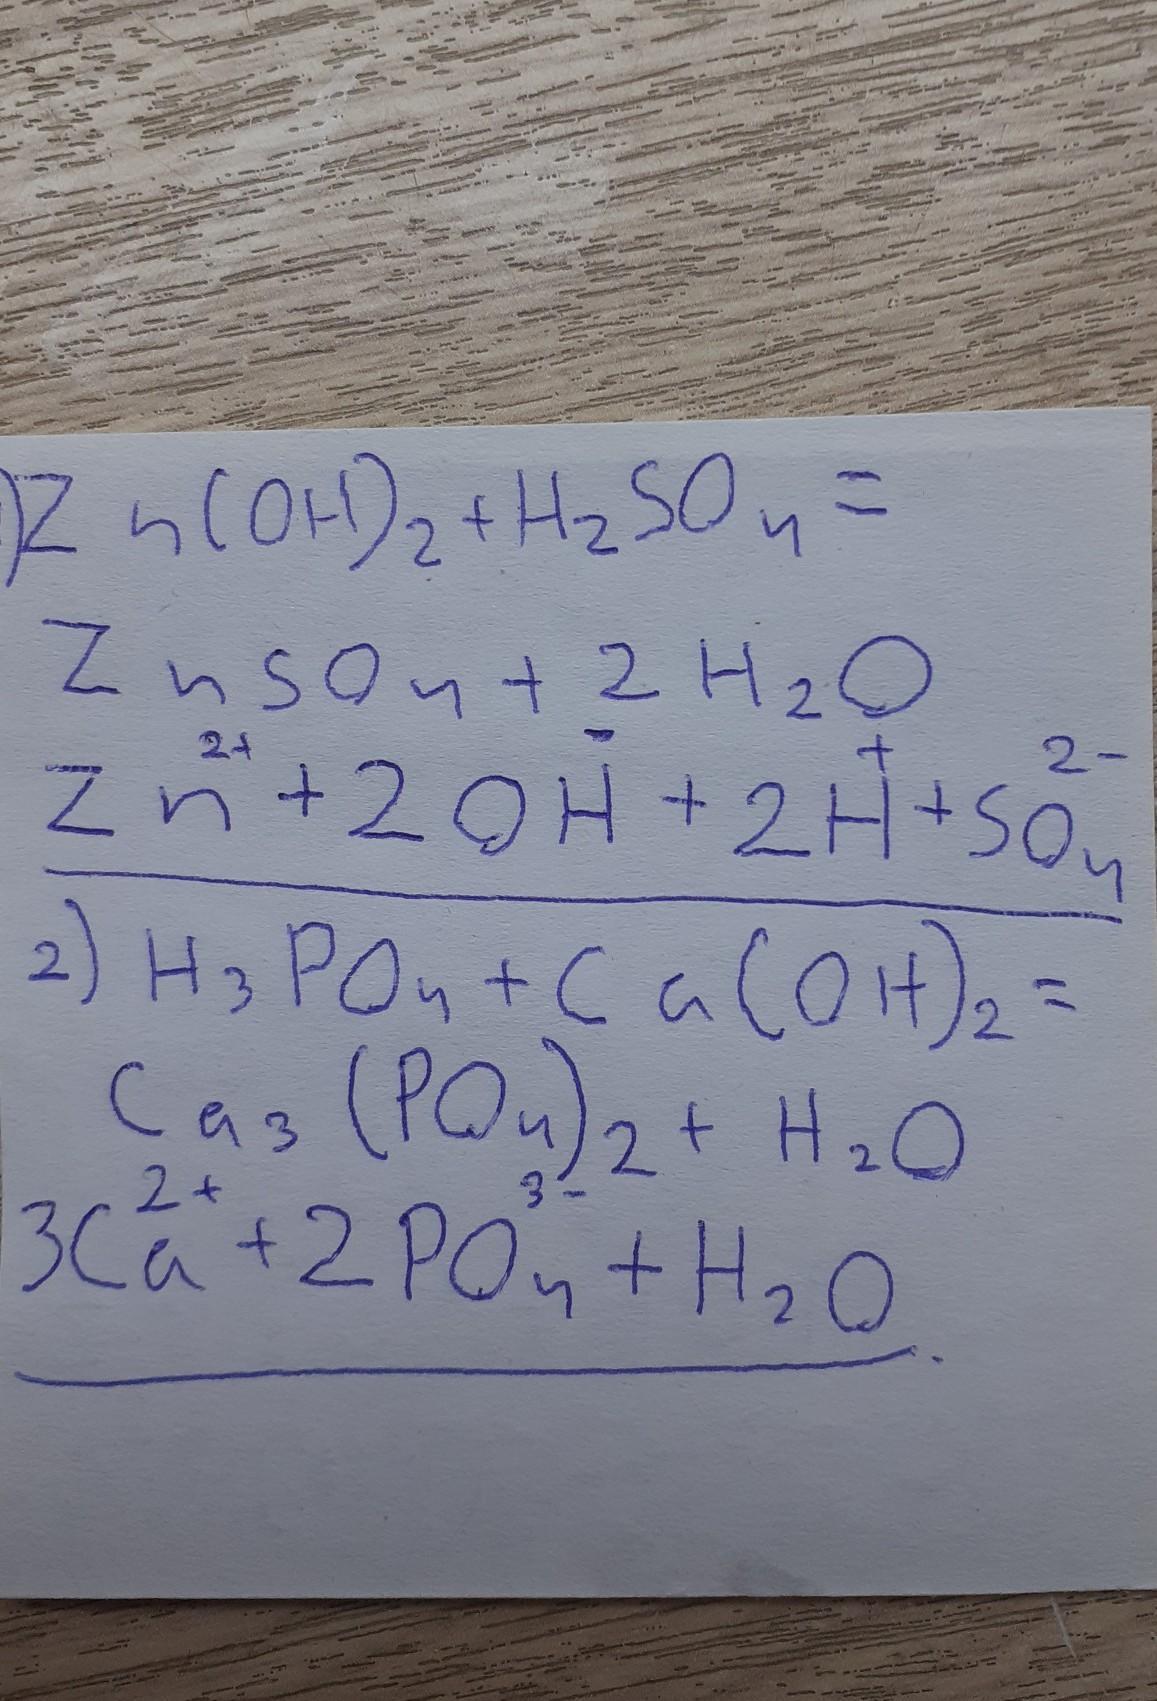 1) Zn(OH)₂ + H₂SO₄ =
ZnSO₄ + 2H₂O
Zn²⁺ + 2OH⁻ + 2H⁺ + SO₄²⁻
2) H₃PO₄ + Ca(OH)₂ =
Ca₃(PO₄)₂ + H₂O
3Ca²⁺ + 2PO₄³⁻ + H₂O